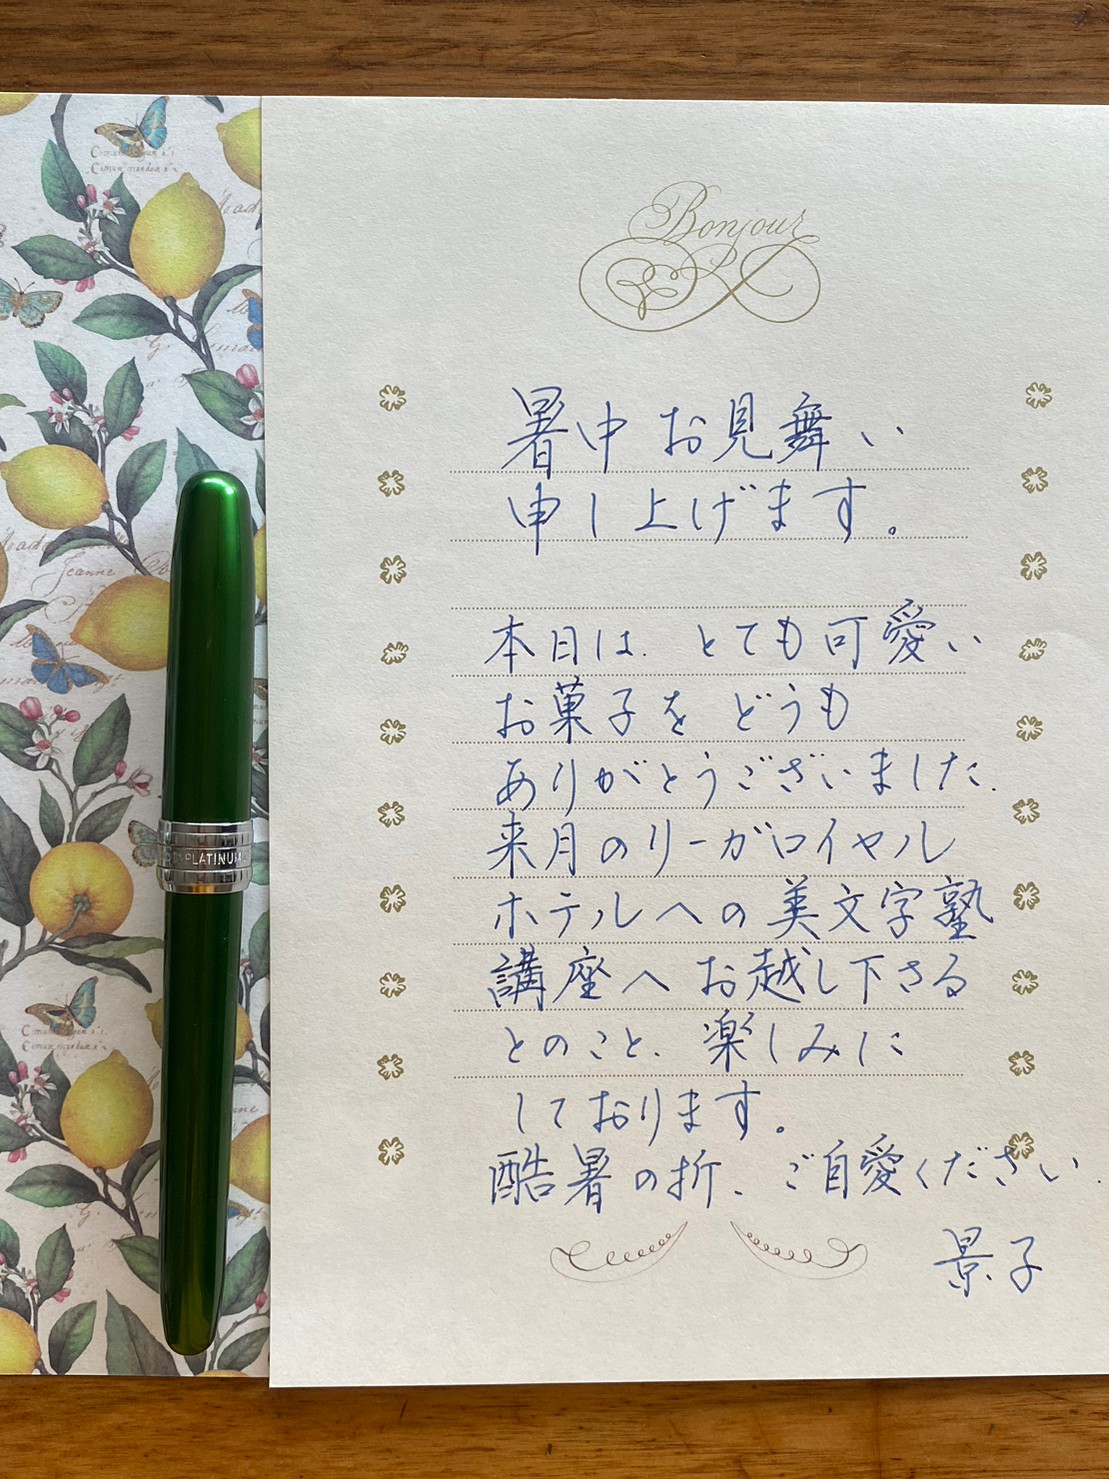 Bonjour
暑中お見舞い
申し上げます。
本日は、とても可愛い
お菓子をどうも
ありがとうございました.
来月のリーガロイヤル
ホテルへの美文字塾
講座へお越し下さる
とのこと、楽しみに
しております。
酷暑の折、ご自愛ください.
景子
PLATINUM
Jeanne